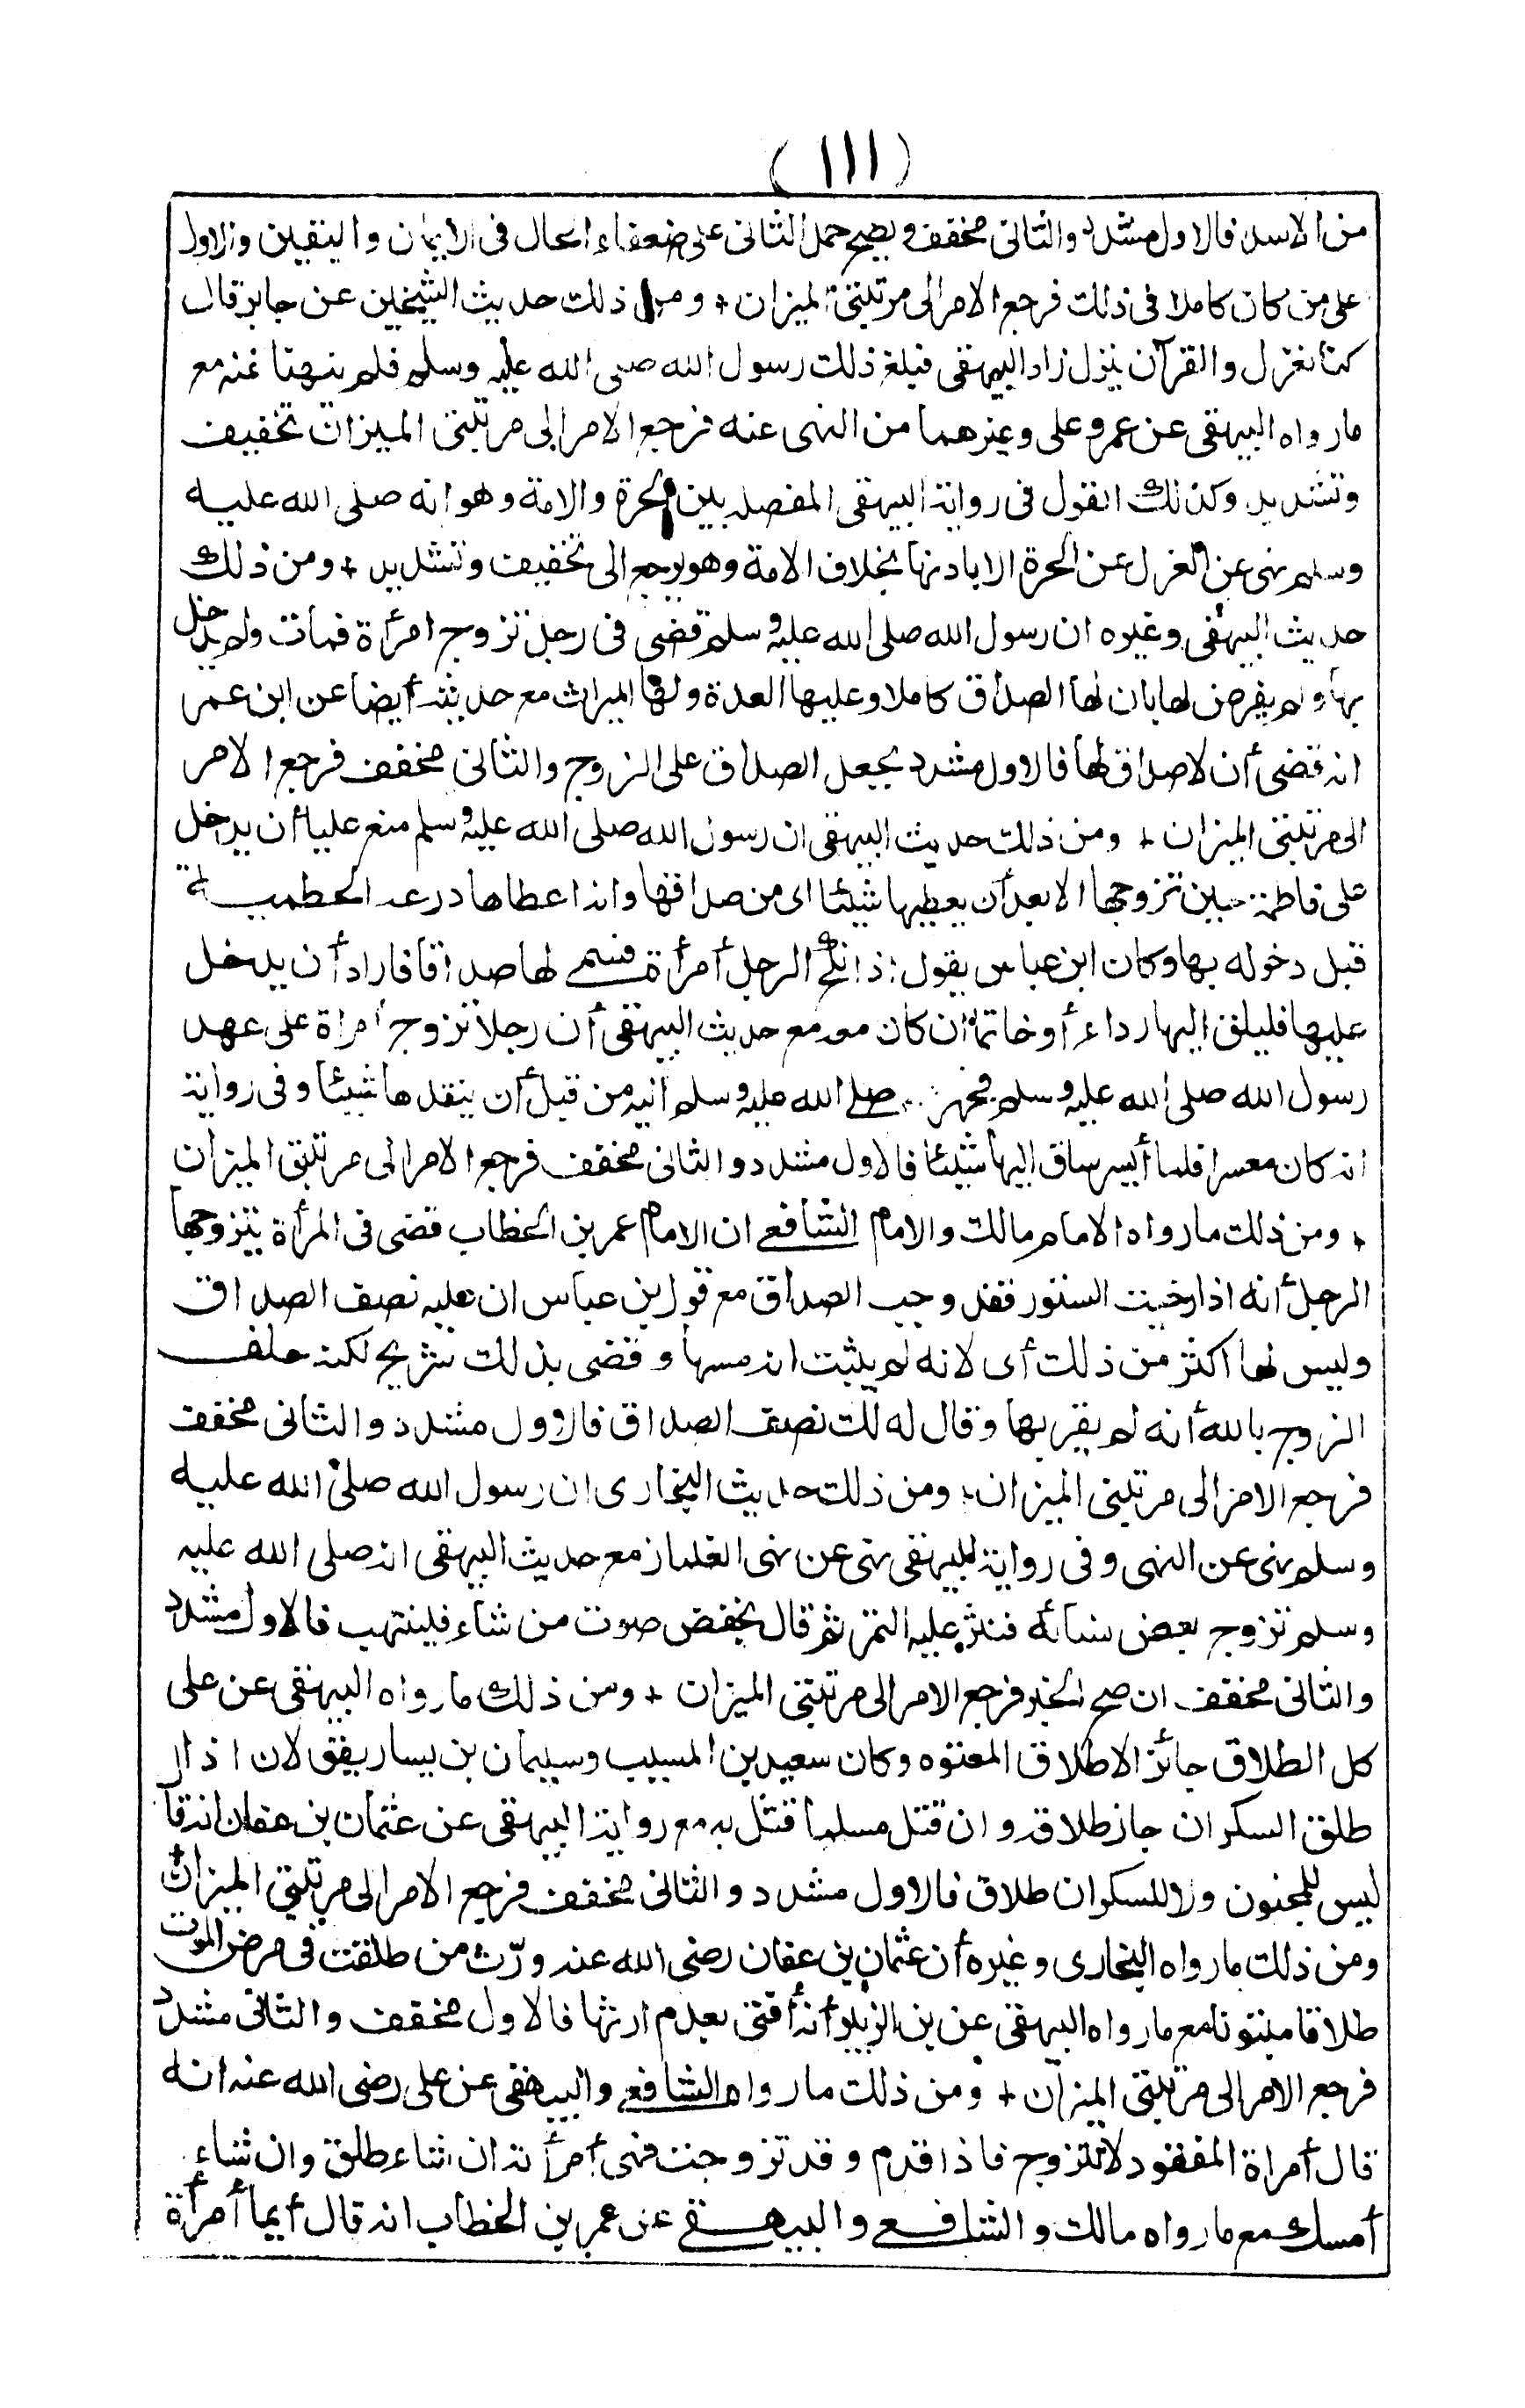 (١١١)
من الاسد فالاول مشدد والثانى مخفف ويصح حمل الثانى على ضعفاء الحال فى الايمان واليقين والاول
على من كان كاملا فى ذلك فرجع الامر الى مرتبتى الميزان + ومن ذلك حديث الشيخين عن جابر قال
كنا نعزل والقرآن ينزل زاد البيهقى فبلغ ذلك رسول الله صلى الله عليه وسلم فلم ينهنا عنه مع
ما رواه البيهقى عن عمر وعلى وغيرهما من النهى عنه فرجع الامر الى مرتبتى الميزان تخفيف
وتشديد وكذلك القول فى رواية البيهقى المفصلة بين الحرة والامة وهو انه صلى الله عليه
وسلم نهى عن العزل عن الحرة الا باذنها بخلاف الامة وهو يرجع الى تخفيف وتشديد + ومن ذلك
حديث البيهقى وغيره ان رسول الله صلى الله عليه وسلم قضى فى رجل تزوج امرأة فمات ولم يدخل
بها ولم يفرض لها بان لها الصداق كاملا وعليها العدة ولها الميراث مع حديثه أيضا عن ابن عمر
انه قضى أن لا صداق لها فالاول مشدد بجعل الصداق على الزوج والثانى مخفف فرجع الامر
الى مرتبتى الميزان + ومن ذلك حديث البيهقى ان رسول الله صلى الله عليه وسلم منع عليا أن يدخل
على فاطمة حين تزوجها الا بعد أن يعطيها شيئا اى من صداقها وانه اعطاها درعه الحطمية
قبل دخوله بها وكان ابن عباس يقول اذا نكح الرجل أمرأة فسمى لها صداقا فاراد أن يدخل
عليها فليلق اليها رداء أو خاتما ان كان معه مع حديث البيهقى أن رجلا تزوج أمرأة على عهد
رسول الله صلى الله عليه وسلم فجهزها صلى الله عليه وسلم اليه من قبل أن ينقدها شيئا وفى رواية
انه كان معسرا فلما أيسر ساق اليها شيئا فالاول مشدد والثانى مخفف فرجع الامر الى مرتبتى الميزان
+ ومن ذلك ما رواه الامام مالك والامام الشافعى ان الامام عمر بن الخطاب قضى فى المرأة يتزوجها
الرجل أنه اذا رخيت الستور فقد وجب الصداق مع قول بن عباس ان عليه نصف الصداق
وليس لها اكثر من ذلك أى لانه لم يثبت انه مسها وقضى بذلك شريح لكنه حلف
الزوج بالله أنه لم يقربها وقال له لك نصف الصداق فالاول مشدد والثانى مخفف
فرجع الامر الى مرتبتى الميزان + ومن ذلك حديث البخارى ان رسول الله صلى الله عليه
وسلم نهى عن النهبى وفى رواية للبيهقى نهى عن نهبى الغلمان مع حديث البيهقى انه صلى الله عليه
وسلم تزوج بعض نسائه فنثر عليه التمر ثم قال بخفض صوت من شاء فلينتهب فالاول مشدد
والثانى مخفف ان صح الخبر فرجع الامر الى مرتبتى الميزان + ومن ذلك ما رواه البيهقى عن على
كل الطلاق جائز الا طلاق المعتوه وكان سعيد بن المسيب وسليمان بن يسار يقولان اذا
طلق السكران جاز طلاقه وان قتل مسلما قتل به مع رواية البيهقى عن عثمان بن عفان انه قال
ليس للمجنون ولا للسكران طلاق فالاول مشدد والثانى مخفف فرجع الامر الى مرتبتى الميزان +
ومن ذلك ما رواه البخارى وغيره أن عثمان بن عفان رضى الله عنه ورّث من طلقت فى مرض الموت
طلاقا مبتوتا مع ما رواه البيهقى عن بن الزبير أنه أفتى بعدم ارثها فالاول مخفف والثانى مشدد
فرجع الامر الى مرتبتى الميزان + ومن ذلك ما رواه الشافعى والبيهقى عن على رضى الله عنه انه
قال أمرأة المفقود لا تتزوج فاذا قدم وقد تزوجت فهى أمرأته ان شاء طلق وان شاء
أمسك مع ما رواه مالك والشافعى والبيهقى عن عمر بن الخطاب انه قال أيما أمرأة